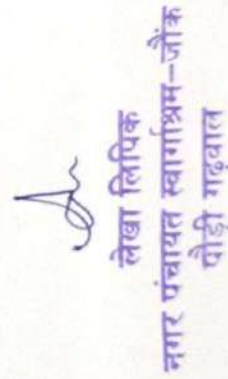 लेखा लिपिक
नगर पंचायत स्वर्गाश्रम-जौंक
पौड़ी गढ़वाल